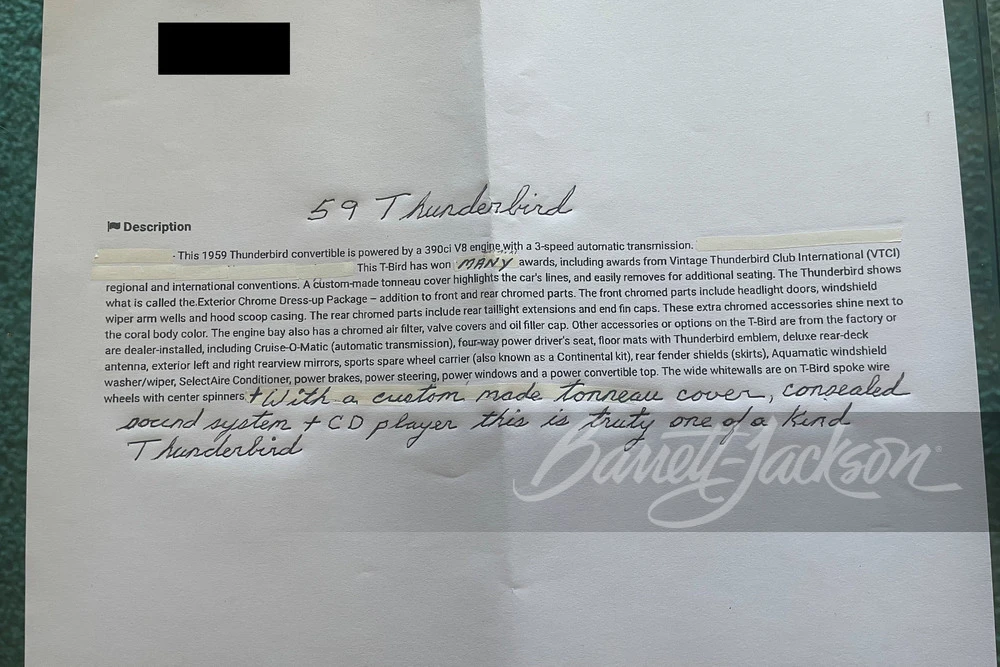 59 Thunderbird
Description
- This 1959 Thunderbird convertible is powered by a 390ci V8 engine with a 3-speed automatic transmission.
This T-Bird has won MANY awards, including awards from Vintage Thunderbird Club International (VTCI)
regional and international conventions. A custom-made tonneau cover highlights the car's lines, and easily removes for additional seating. The Thunderbird shows
what is called the Exterior Chrome Dress-up Package – addition to front and rear chromed parts. The front chromed parts include headlight doors, windshield
wiper arm wells and hood scoop casing. The rear chromed parts include rear taillight extensions and end fin caps. These extra chromed accessories shine next to
the coral body color. The engine bay also has a chromed air filter, valve covers and oil filler cap. Other accessories or options on the T-Bird are from the factory or
are dealer-installed, including Cruise-O-Matic (automatic transmission), four-way power driver's seat, floor mats with Thunderbird emblem, deluxe rear-deck
antenna, exterior left and right rearview mirrors, sports spare wheel carrier (also known as a Continental kit), rear fender shields (skirts), Aquamatic windshield
washer/wiper, SelectAire Conditioner, power brakes, power steering, power windows and a power convertible top. The wide whitewalls are on T-Bird spoke wire
wheels with center spinners. + With a custom made tonneau cover, consealed
sound system + CD player this is truty one of a kind
Thunderbird
Barrett-Jackson